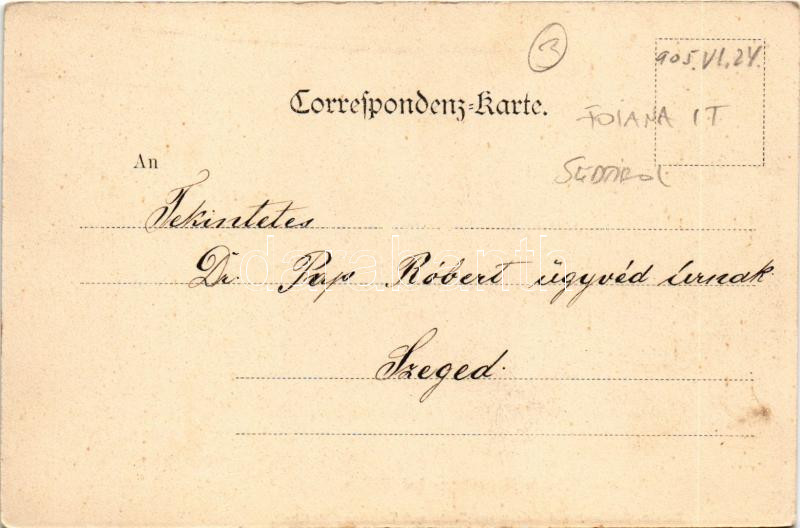 3
905.VI.24.
Correſpondenz-Karte.
FOIANA IT
SÜDTIROL
An
Tekintetes
Dr. Pap Róbert ügyvéd úrnak
Szeged.